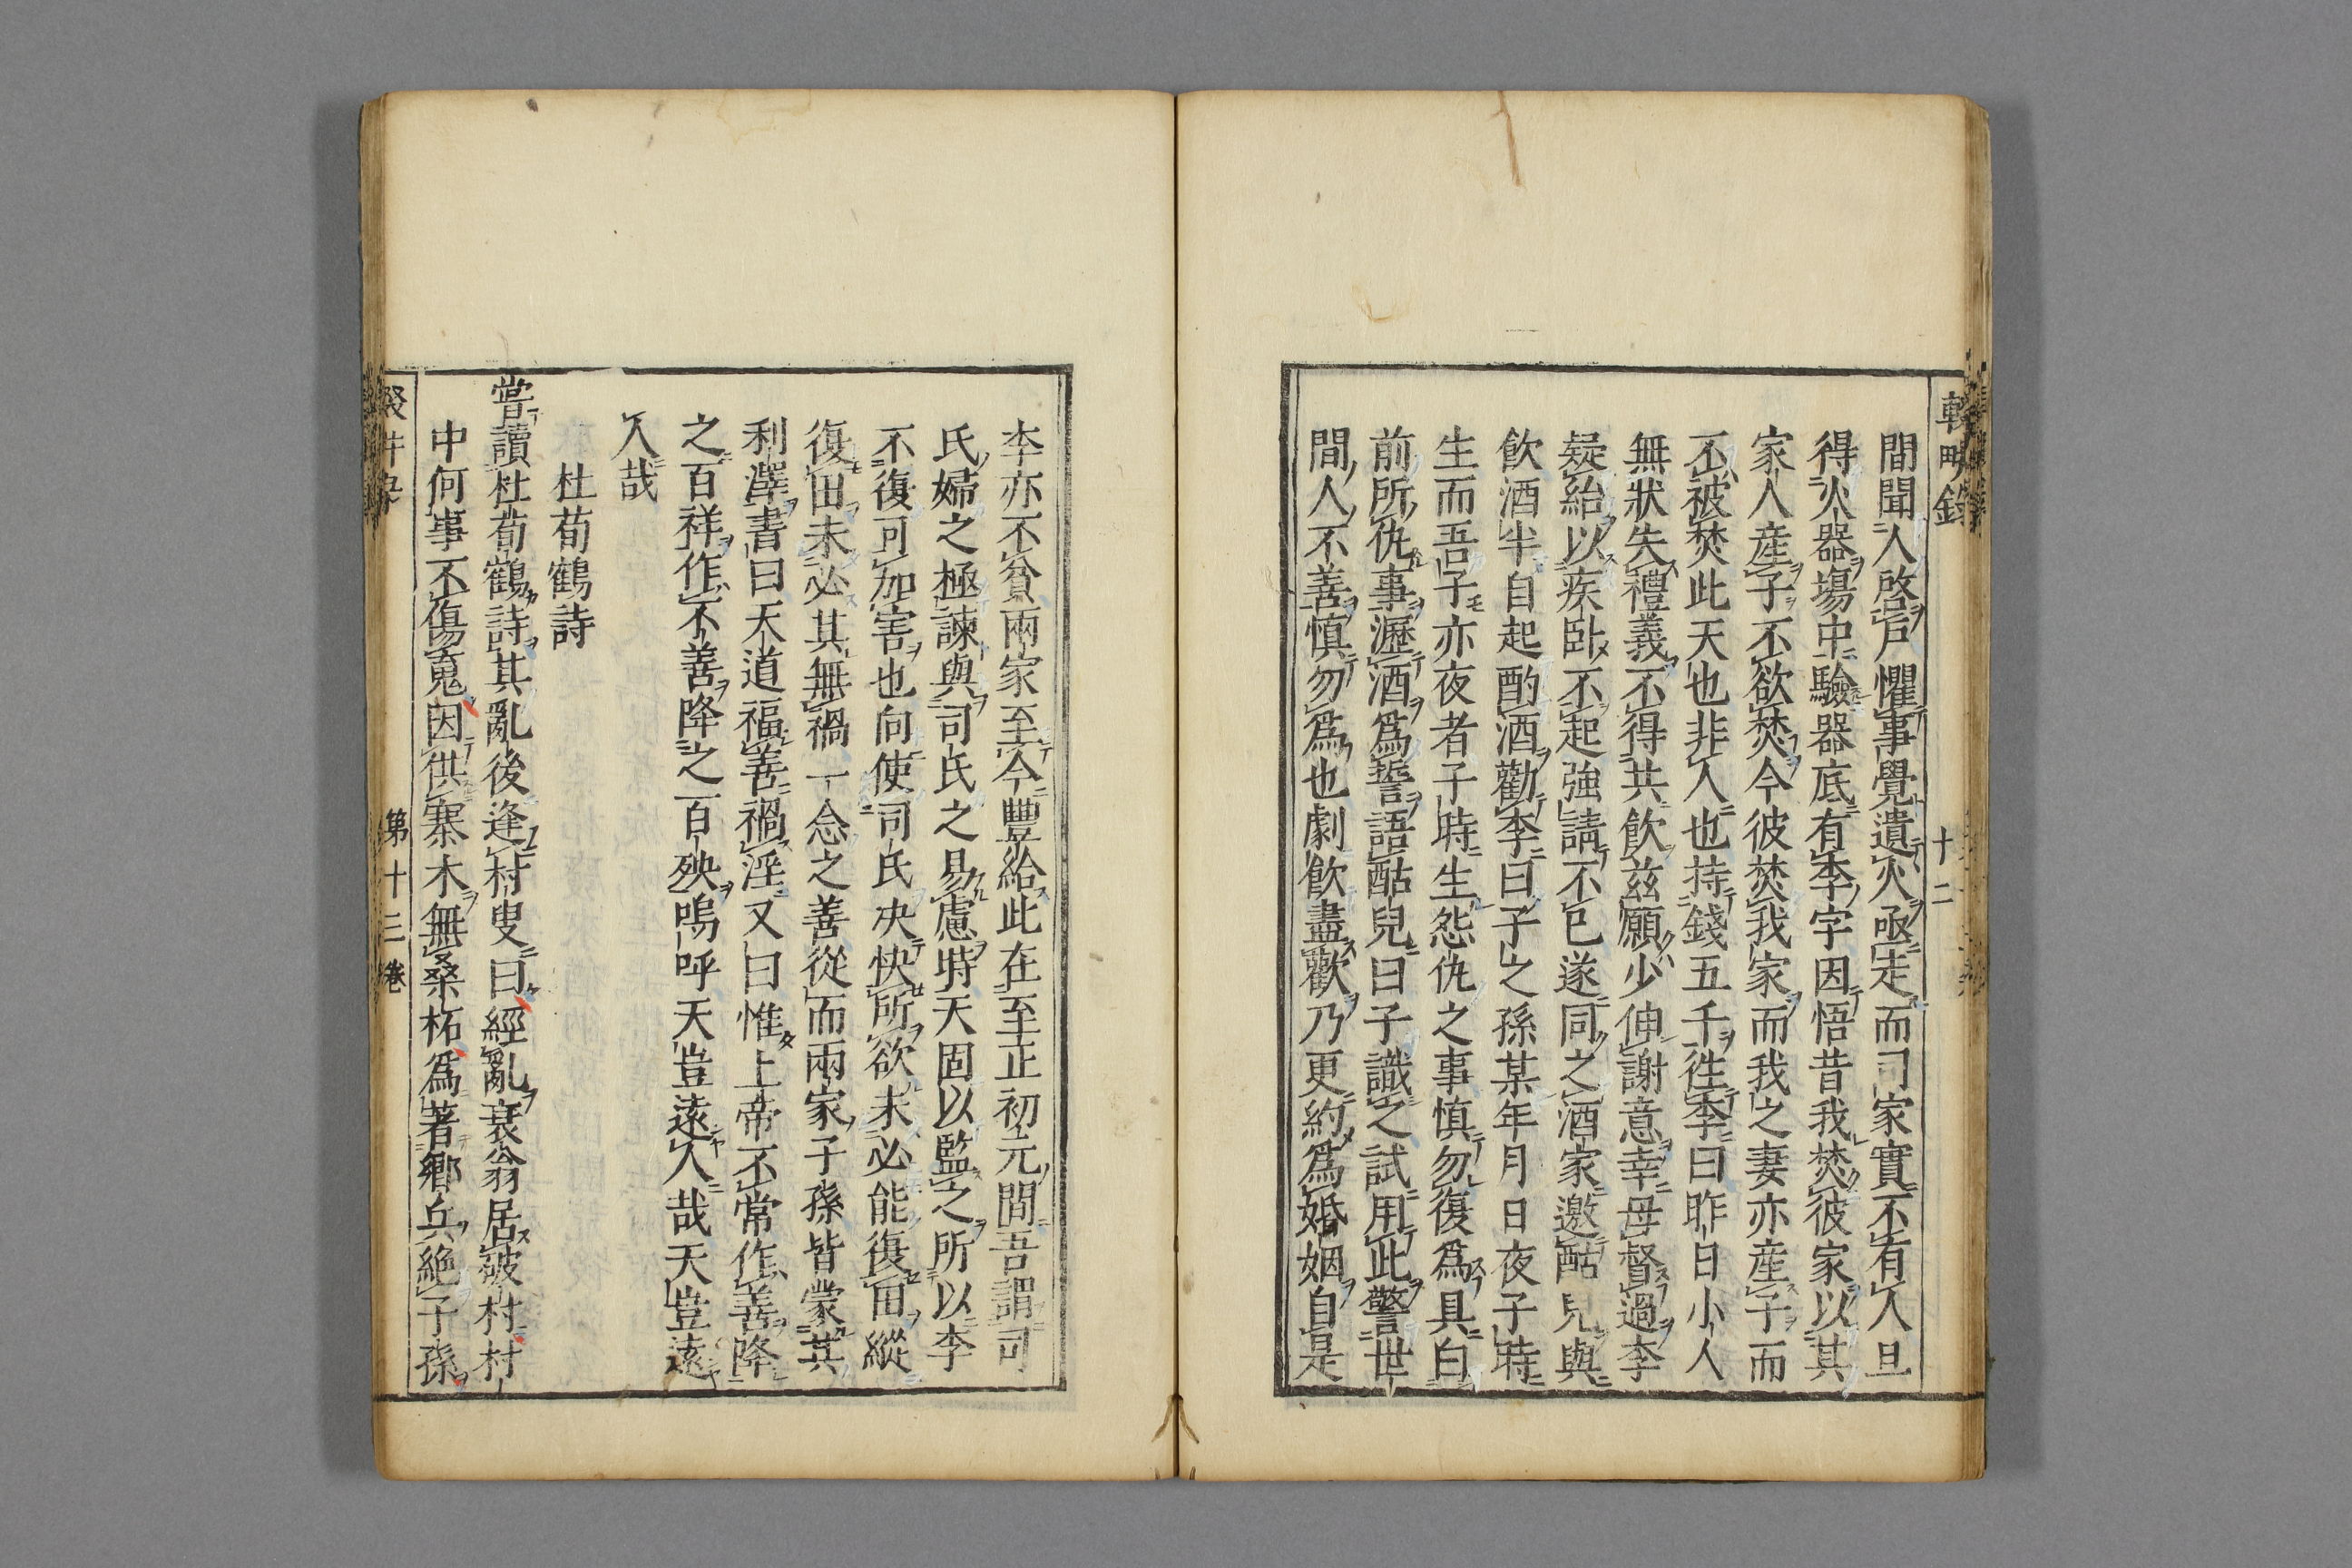 輟畊錄
十二
間聞人啓戸懼事覺遺火亟走而司家實不有人旦
得火器塲中驗器底有李字因悟昔我焚彼家以其
家人産子不欲焚今彼焚我家而我之妻亦産子而
不被焚此天也非人也持錢五千徃李曰昨日小人
無狀失禮義不得共飲兹願少伸謝意幸毋督過李
疑紿以疾臥不起強請不已遂同之酒家邀酤兒與
飲酒半自起酌酒勸李曰子之孫某年月日夜子時
生而吾子亦夜者子時生怨仇之事慎勿復爲具白
前所仇事瀝酒爲誓語酤兒曰子識之試用此警世
間人不善慎勿爲也劇飲盡歡乃更約爲婚姻自是
李亦不貧兩家至今豐給此在至正初元間吾謂司
氏婦之極諫與司氏之易慮時天固以監之所以李
不復可加害也向使司氏决快所欲未必能復田縱
復田未必其無禍一念之善從而兩家子孫皆蒙其
利澤書曰天道福善禍淫又曰惟上帝不常作善降
之百祥作不善降之百殃嗚呼天豈遠人哉天豈遠
人哉
杜荀鶴詩
嘗讀杜荀鶴詩其亂後逢村叟曰經亂衰翁居破村村
中何事不傷魂因供寨木無桑柘爲著鄉兵絶子孫
第十二卷